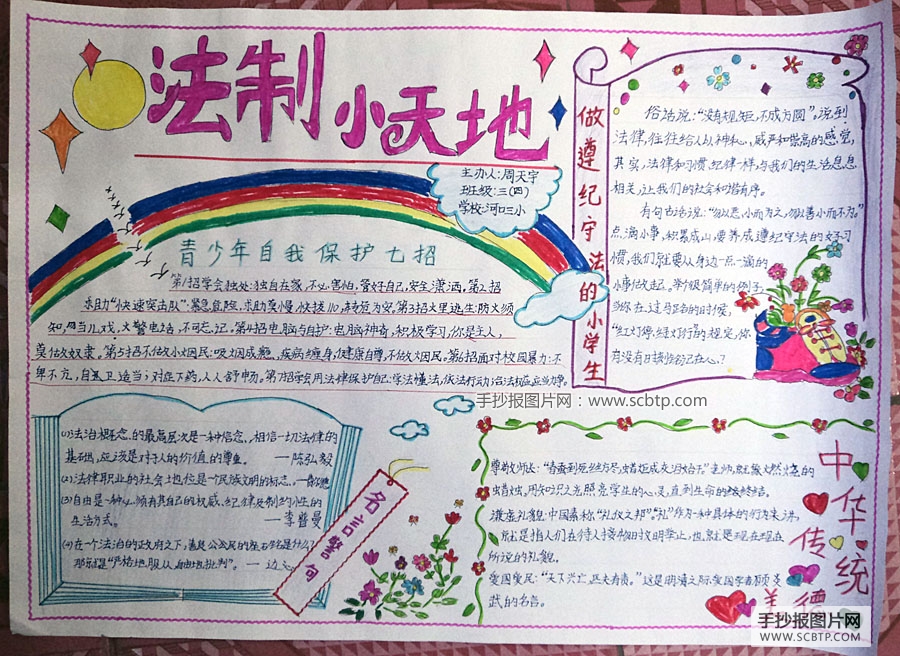 法制小天地
主办人:周天宇
班级:三(四)
学校:河口三小
青少年自我保护七招
第1招学会独处:独自在家,不必害怕,管好自己,安全潇洒,第2招
求助“快速突击队”:紧急危险,求助莫慢,快拨110,转危为安。第3招火里逃生:防火须
知,当儿戏,火警电话,不可忘记。第4招电脑与自护:电脑神奇,积极学习,你是主人,
莫做奴隶。第5招不做小烟民:吸烟成瘾,疾病缠身,健康自尊,不做烟民。第6招面对校园暴力:不
卑不亢,自卫适当;对症下药,人人舒畅。第7招学会用法律保护自己:学法懂法,依法行动
做遵纪守法的小学生
俗话说:“没有规矩,不成方圆”。说到
法律,往往给人以神秘,威严和崇高的感觉,
其实,法律和习惯纪律一样,与我们的生活息息
相关,让我们的社会和谐有序。
有句古话说:“勿以恶小而为之,勿以善小而不为。”
点滴小事,积累成山,要养成遵纪守法的好习
惯,我们就要从身边一点一滴的
小事做起。举个极简单的例子
当你在过马路的时候,
“红灯停,绿灯行”的规定,你
有没有时刻铭记在心?
手抄报图片网:www.scbtp.com
(1)法治概念的最高层次是一种信念,相信一切法律的
基础,应该是对于人的价值的尊重。 —陈弘毅
(2)法律职业的社会地位是一个民族文明的标志。—费尔德
(3)自由是一种必须有其自己的权威、纪律及制约性的
生活方式。 —李普曼
(4)在一个法治的政府之下,善良公民的座右铭是什么?
那就是“严格地服从,自由地批判”。 —边沁
名言警句
尊敬师长:“春蚕到死丝方尽,蜡炬成灰泪始干”老师,就像火燃烧的
蜡烛,用知识之光照亮学生的心灵,直到生命的最终结。
谦虚礼貌:中国素称“礼仪之邦”。“礼”作为一种具体的行为来讲,
就是指人们在待人接物时的文明举止,也就是现在所
所说的礼貌。
爱国爱民:“天下兴亡,匹夫有责。”这是明清之际爱国学者顾炎
武的名言。
中华传统美德
手抄报图片网
WWW.SCBTP.COM